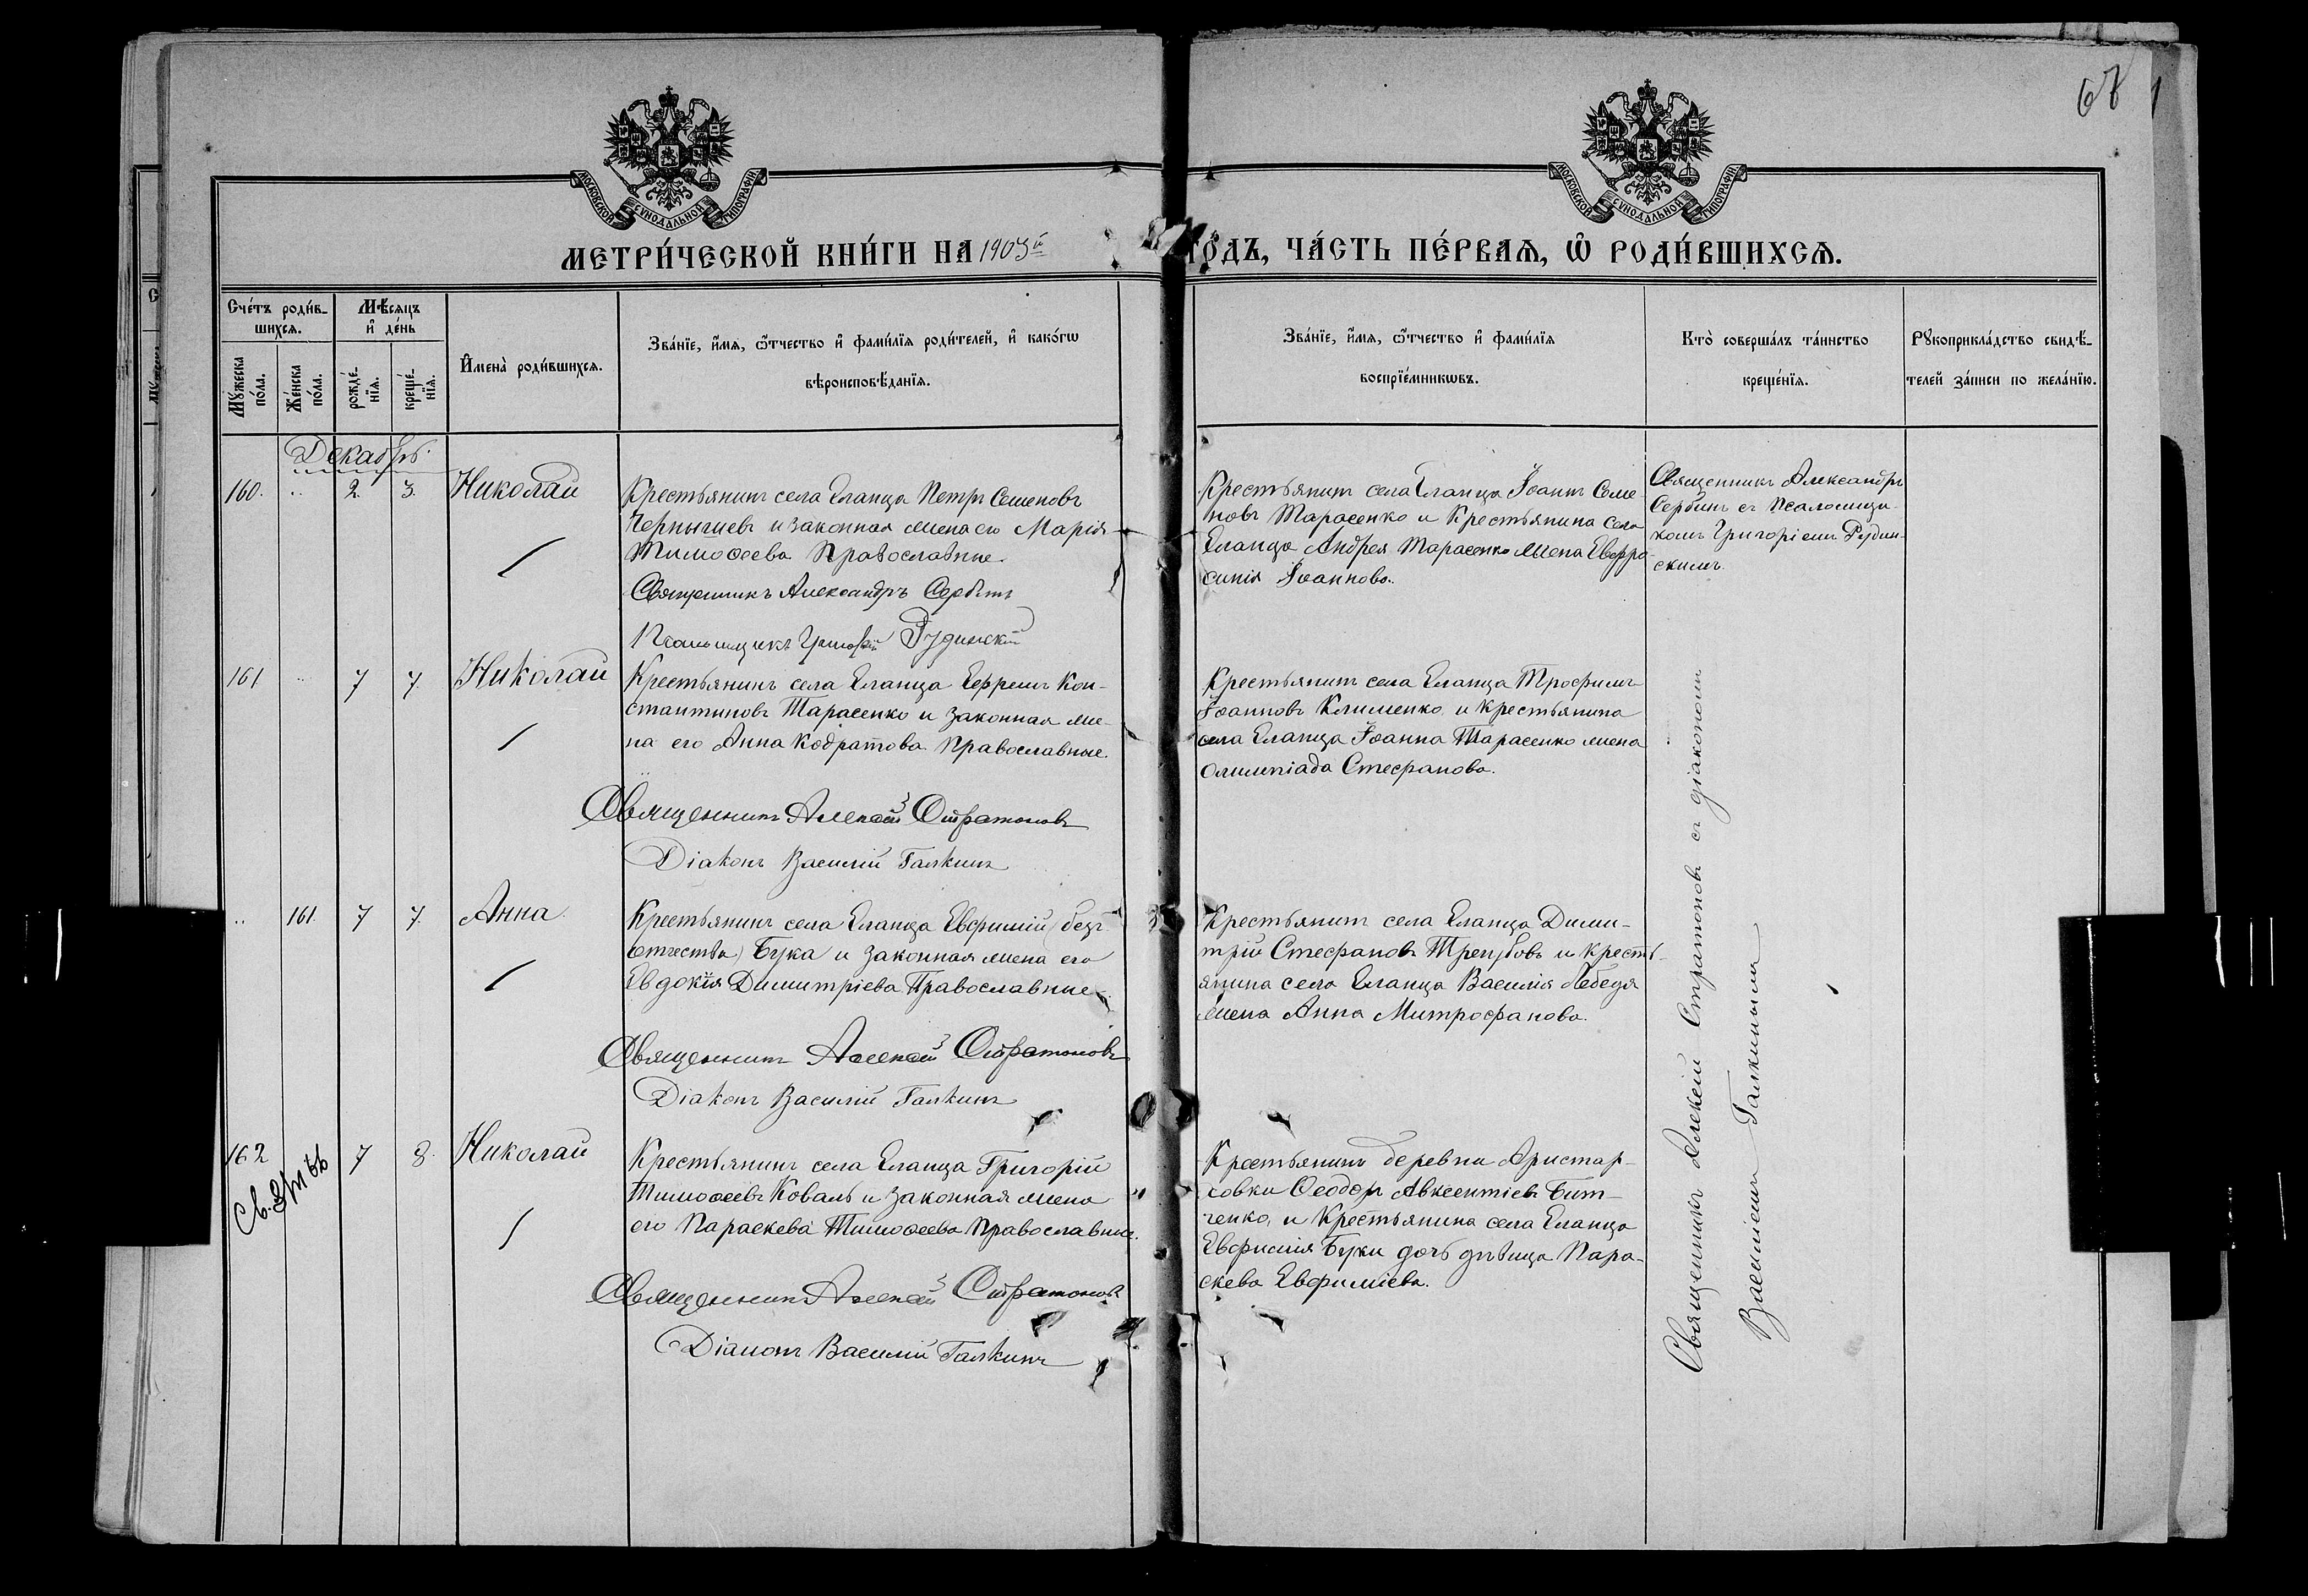 67
МОСКОВСКОЙ СѴНОДАЛЬНОЙ ТИПОГРАФІИ
МОСКОВСКОЙ СѴНОДАЛЬНОЙ ТИПОГРАФІИ
МЕТРИ́ЧЕСКОЙ КНИ́ГИ НА 1903й
ГО́ДЪ, ЧА́СТЬ ПЕ́РВАЯ, Ѡ҆ РОДИ́ВШИХСЯ.
Сче́тъ роди́в-
шихся.
Мѣ́сяцъ
и҆ де́нь
Мꙋ́жеска
по́ла.
Же́нска
по́ла.
рожде́-
нїя.
креще́-
нїя.
И҆мена̀ роди́вшихся.
Зва́нїе, и҆́мя, ѻ҆́тчество и҆ фами́лїя роди́телей, и҆ како́гѡ
вѣроисповѣ́данїя.
Зва́нїе, и҆́мя, ѻ҆́тчество и҆ фами́лїя
воспрїе́мникѡвъ.
Кто̀ соверша́лъ та́инство
креще́нїя.
Рꙋкоприкла́дство свидѣ́-
телей за́писи по жела́нїю.
Декабрь.
160. .. 2. 3. Николай
Крестьянинъ села Еланца Петръ Семеновъ
Чернышевъ и законная жена его Марія
Тимоѳеева Православные.
Священникъ Александръ Сербинъ
Псаломщикъ Григорій Рудинскій
Крестьянинъ села Еланца Іоаннъ Семе-
новъ Тарасенко и Крестьянина села
Еланца Андрея Тарасенко жена Евфро-
синія Іоаннова.
Священникъ Александръ
Сербинъ съ Псаломщи-
комъ Григоріемъ Рудин-
скимъ.
161 .. 7 7. Николай
Крестьянинъ села Еланца Ефремъ Кон-
стантиновъ Тарасенко и законная же-
на его Анна Кодратова Православные.
Священникъ Алексій Стратоновъ
Діаконъ Василій Галкинъ
Крестьянинъ села Еланца Трофимъ
Іоанновъ Клименко и крестьянина
села Еланца Іоанна Тарасенко жена
Олимпіада Стефанова.
.. 161 7 7. Анна.
Крестьянинъ села Еланца Евфимій (безъ
отчества) Бука и законная жена его
Евдокія Димитріева Православные.
Священникъ Алексій Стратоновъ
Діаконъ Василій Галкинъ
Крестьянинъ села Еланца Дими-
трій Стефановъ Трепубовъ и кресть-
янина села Еланца Василія Лебедя
жена Анна Митрофанова.
162 7 8. Николай
Крестьянинъ села Еланца Григорій
Тимоѳеевъ Коваль и законная жена
его Параскева Тимоѳеева Православные.
Священникъ Алексій Стратоновъ
Діаконъ Василій Галкинъ
Крестьянинъ деревни Аристар-
ховки Ѳеодоръ Авксентіевъ Бит-
ченко, и Крестьянина села Еланца
Евфимія Буки дочь дѣвица Пара-
скева Евфиміева.
Священникъ Алексій Стратоновъ съ діакономъ
Василіемъ Галкинымъ